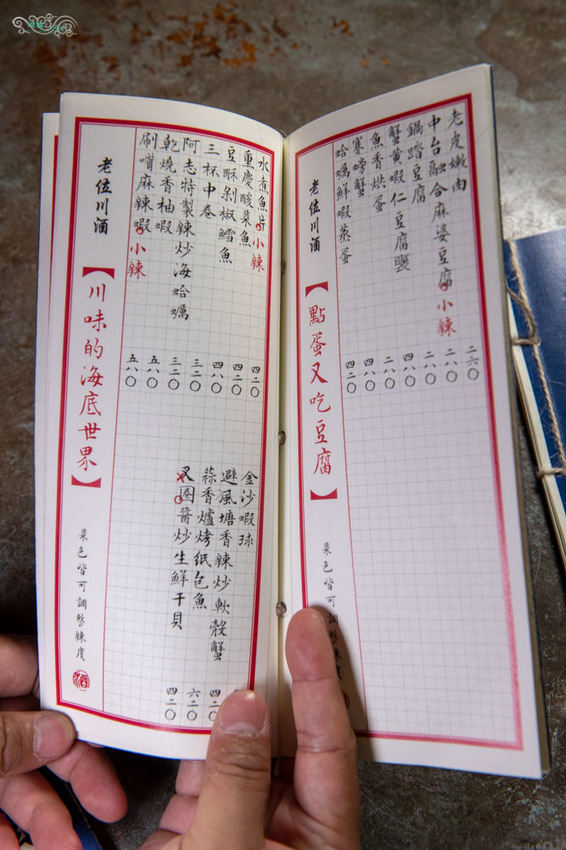 老皮嫩肉 二六〇
中台融合麻婆豆腐 小辣 二八〇
鍋踏豆腐
蟹黃蝦仁豆腐襲 四八〇
魚香烘蛋 二八〇
賽螃蟹 四八〇
哈蠣鮮蝦蒸蛋 四二〇
老位川酒
【點蛋又吃豆腐】
菜色皆可調整辣度
水煮魚片 小辣 四二〇
重慶酸菜魚 四二〇
豆酥剁椒鱈魚 四八〇
三杯中卷 三二〇
阿志特製辣炒海哈蠣 三二〇
乾燒香柚蝦 五八〇
刷嘴麻辣蝦 小辣 五八〇
金沙蝦球
避風塘香辣炒軟殼蟹
蒜香爐烤纸包魚 六二〇
叉圈醬炒生鮮干貝 四二〇
老位川酒
【川味的海底世界】
菜色皆可調整辣度